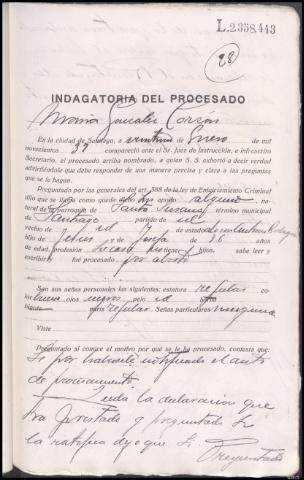 L.2358.443
28
INDAGATORIA DEL PROCESADO
María González
En la ciudad de Santiago, a veintiuno de Enero de mil
novecientos 39 compareció ante el Sr. Juez de Instrucción, e infrascrito
Secretario, el procesado arriba nombrado, a quien S. S. exhortó a decir verdad
advirtiéndole que debe responder de una manera precisa y clara a las preguntas
que se le hagan.
Preguntado por las generales del art. 388 de la ley de Enjuiciamiento Criminal
dijo que se llama como queda dicho apodo alguno natu-
ral de parroquia de Santa Susana término municipal
Santiago partido de id
vecino de id de estado
de Jesús y Josefa de 36 años
de edad, profesión hijos, sabe leer y
escribir y fué procesado por aborto
Son sus señas personales las siguientes: estatura regular co-
lor ojos negros pelo id
nariz regular Señas particulares ninguna
Viste
Preguntado si conoce el motivo por qué se le ha procesado, contesta que:
Sí por habérsele notificado el auto
de procesamiento.
Leída la declaración que
ha prestado y preguntado si
la ratifica dijo que sí. Preguntado